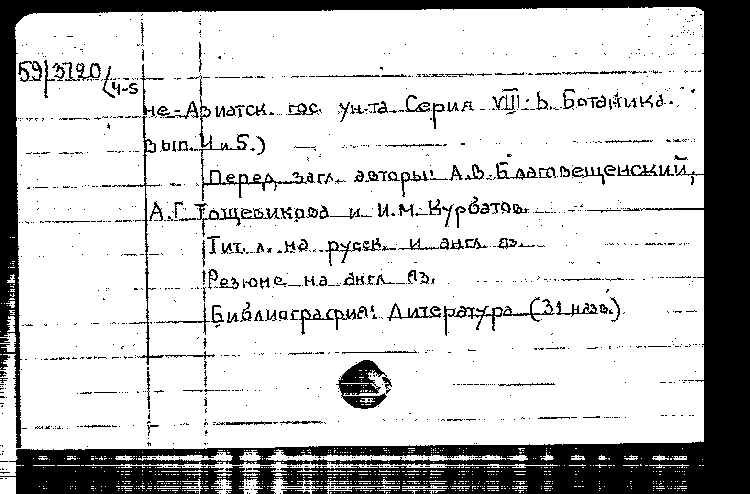 59/3720/4-5
не-Азиатск. гос. ун-та. Серия VIII-b. Ботаника.
Вып. 4 и 5.)
Перед загл. авторы: А.В. Благовещенский,
А.Г. Тощевикова и И.М. Курбатов.
Тит. л. на русск. и англ. яз.
Резюме на англ. яз.
Библиография: Литература (31 назв.)